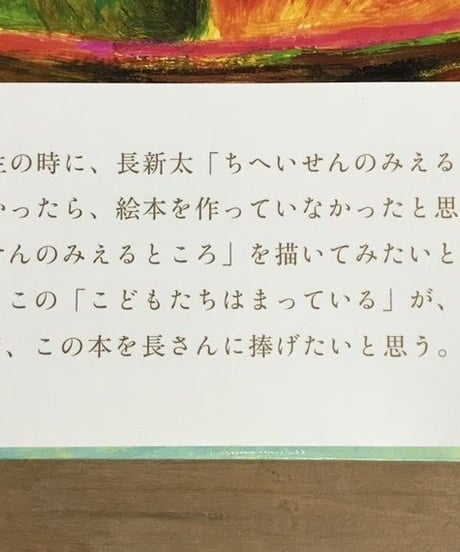 生の時に、長新太「ちへいせんのみえる
かったら、絵本を作っていなかったと思
せんのみえるところ」を描いてみたいと
、この「こどもたちはまっている」が、
、この本を長さんに捧げたいと思う。